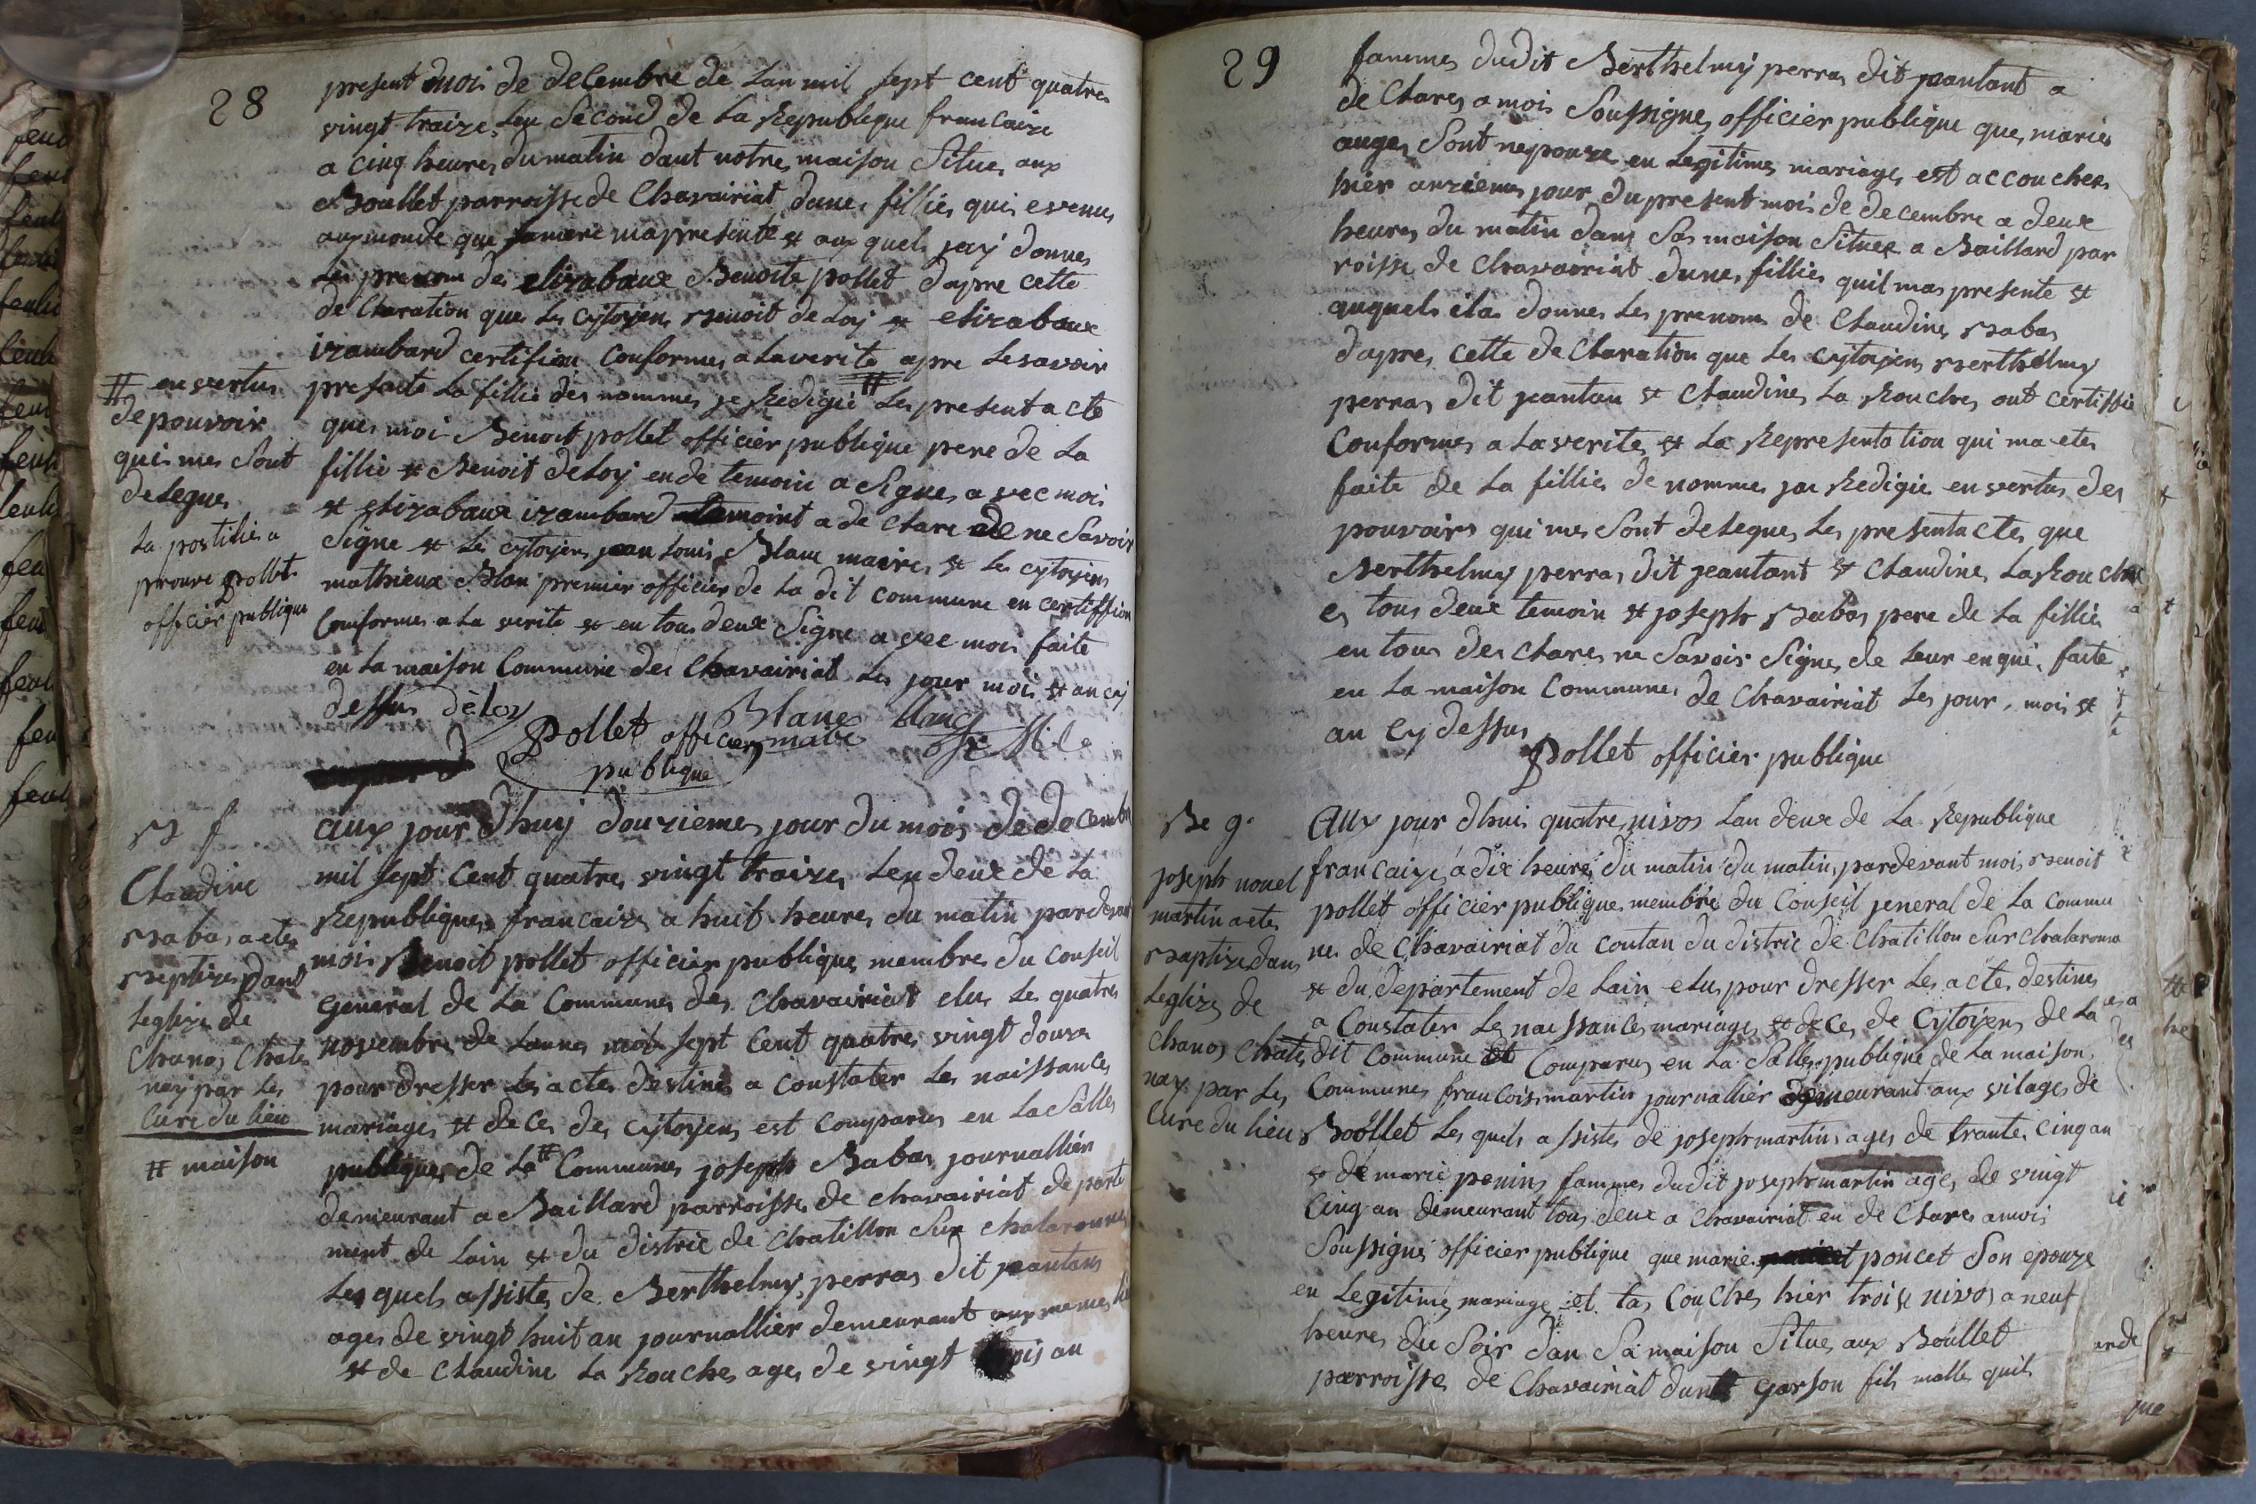 28
present mois de decembre de Lan mil sept cent quatres
vingt traize, Lan Second de La Republique francaize
a cinq heures du matin dant notres maison Situes aux
Boullet parroisse de Chavairiat dunes fillies quis evenus
aux monde que samere ma presente et aux quels jay donnes
Les prenom des elizabaux Benoite pollet dapre cette
de Claration ques Les cytoyens Benoit deLoy et elizabaux
izambard certifion Conformes a La verite apre Lesavoir
presente La fillie des nommes je Redigie # Les present acte
ques moi Benoit pollet officier publique pere de La
fillie et Benoit deLoy en de temoin a Signes avec mois
et elizabaux izambard temoint a de Clare de ne Savoir
Signe et Les cytoyens jean Louis Blanc maires et Les cytoyens
mathieux Blan premier officier de La dit commune en certiffion
Conformes a La verite et en tous deux Signe avec mois faite
en La maison Commune des Chavairiat Les jour mois et an cy
dessus
# en vertus
de pouvoir
quis mes Sont
delegues
La postilies a
prouve pollet
officier publique
deloy
Pollet officier
publique
Blanc
maire
blanc
B f
Claudine
Babas a etes
Baptizes dant
Leglize de
Chanos Chate
nay par Les
Cure du lieu
# maison
aux jour dhuy douziemes jour du mois de decembr
mil sept Cent quatres vingt traizes Len deux de La
Republiques francaizes a huit heures du matin pardevant
mois Benoit pollet officier publiques membres du Conseil
general de La Communes des Chavairiat elus Les quatres
novembre de Lannes mil sept Cent quatres vingt douze
pour dresser Les actes destines a Constater Les naissances
mariages et deces des cytoyens est Comparus en La Salles
publiques de La # Communes joseph Babas journallier
demeurant a Baillard parroisses de chavairiat departe
ment de Lain et du distric de Chatillon Sur chalaronnes
Les quels assistes de Berthelmy perras dit jeantans
ages de vingt huit an journallier demeurant aux memes
et de Claudine La Rouches ages de vingt trois an
29
fammes dudit Berthelmy perras dit jeantant a
de Clares a mois Soussignes officier publique ques maries
auges Sont nepouze en Legitimes mariages est accouchee
hier onziemes jour du present mois de decembre a deux
heures du matin dans Sas maison Situee a Baillard par
roisse de Chavairiat dunes fillies quil mas presente et
auquels ila donnes Les prenoms de Claudines Babas
dapres cette de Claration que Les cytoyens Berthelmy
perras dit jeantan et Claudines La Rouches ont certiffie
Conformes a La verites et La Representation qui ma etes
faite de La fillies de nommes jai Redigie en vertus des
pouvoirs qui mes Sont delegues Les present actes que
Berthelmy perras dit jeantant et Claudines La Rouches
es tous deux temoin et joseph Babas pere de La fillies
en tous des clares ne Savoir Signes de Leur enqui, faite
en La maison Communes de Chavairiat Les jour, mois et
an cy dessus
Pollet officier publique
Be g.
joseph nouel
martin a etes
Baptizes dans
Leglizes de
Chanos Chate
nay par Les
Cure du lieu
Aux jour dhuis quatres nivos Lan deux de La Republique
francaize, a dix heures du matin du matin pardevant mois Benoit
pollet officier publiques membre du Conseil jeneral de La Commu
nes de Chavairiat du coutan du distric de Chatillon Sur Chalaronne
et du departement de Lain elus pour dresser Les actes destines
a Constater Les naissances mariages et deces de Cytoyens de La
dit Commune Comparus en La Salles publique de La maison
Communes francois martin journallier demeurant aux vilages de
Boollet Les quels assistes de joseph martins ages de trante cinq an
et de marie penins fammes dudit joseph martin ages de vingt
Cinq an demeurant tous deux a chavairiat en de Clares amois
Soussigne officier publique que marie poncet Son epouze
en Legitimes mariage et tas Couches hier troise nivos a neuf
heures du Soir dan Sa maison Situes aux Boullet
parroisses de Chavairiat dunt garson fils malles quils